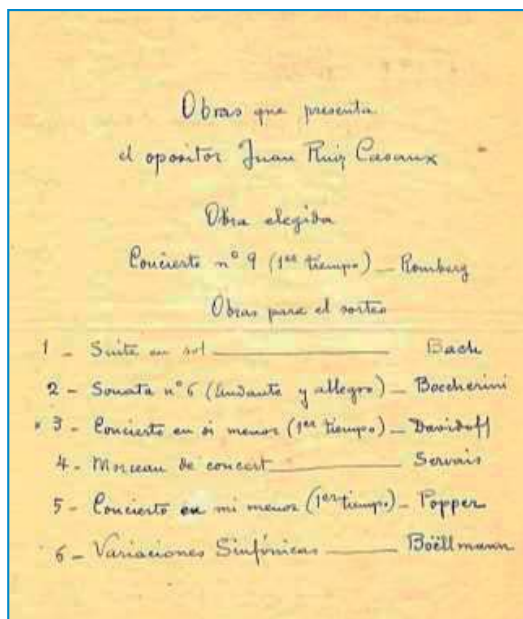 Obras que presenta
el opositor Juan Ruiz Casaux
Obra elegida
Concierto nº 9 (1er tiempo) — Romberg
Obras para el sorteo
1 - Suite en sol — Bach
2 - Sonata nº 6 (Andante y allegro) — Boccherini
x 3 - Concierto en si menor (1er tiempo) — Davidoff
4 - Morceau de concert — Servais
5 - Concierto en mi menor (1er tiempo) — Popper
6 - Variaciones Sinfónicas — Boëllmann